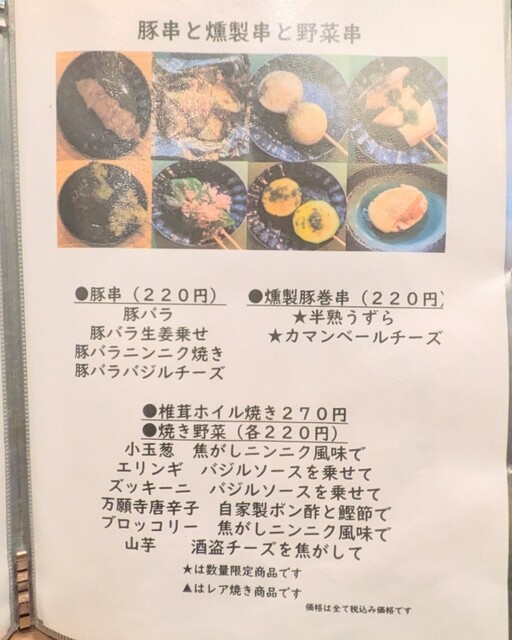 豚串と燻製串と野菜串
●豚串（２２０円）
豚バラ
豚バラ生姜乗せ
豚バラニンニク焼き
豚バラバジルチーズ
●燻製豚巻串（２２０円）
★半熟うずら
★カマンベールチーズ
●椎茸ホイル焼き２７０円
●焼き野菜（各２２０円）
小玉葱　焦がしニンニク風味で
エリンギ　バジルソースを乗せて
ズッキーニ　バジルソースを乗せて
万願寺唐辛子　自家製ポン酢と鰹節で
ブロッコリー　焦がしニンニク風味で
山芋　酒盗チーズを焦がして
★は数量限定商品です
▲はレア焼き商品です
価格は全て税込み価格です